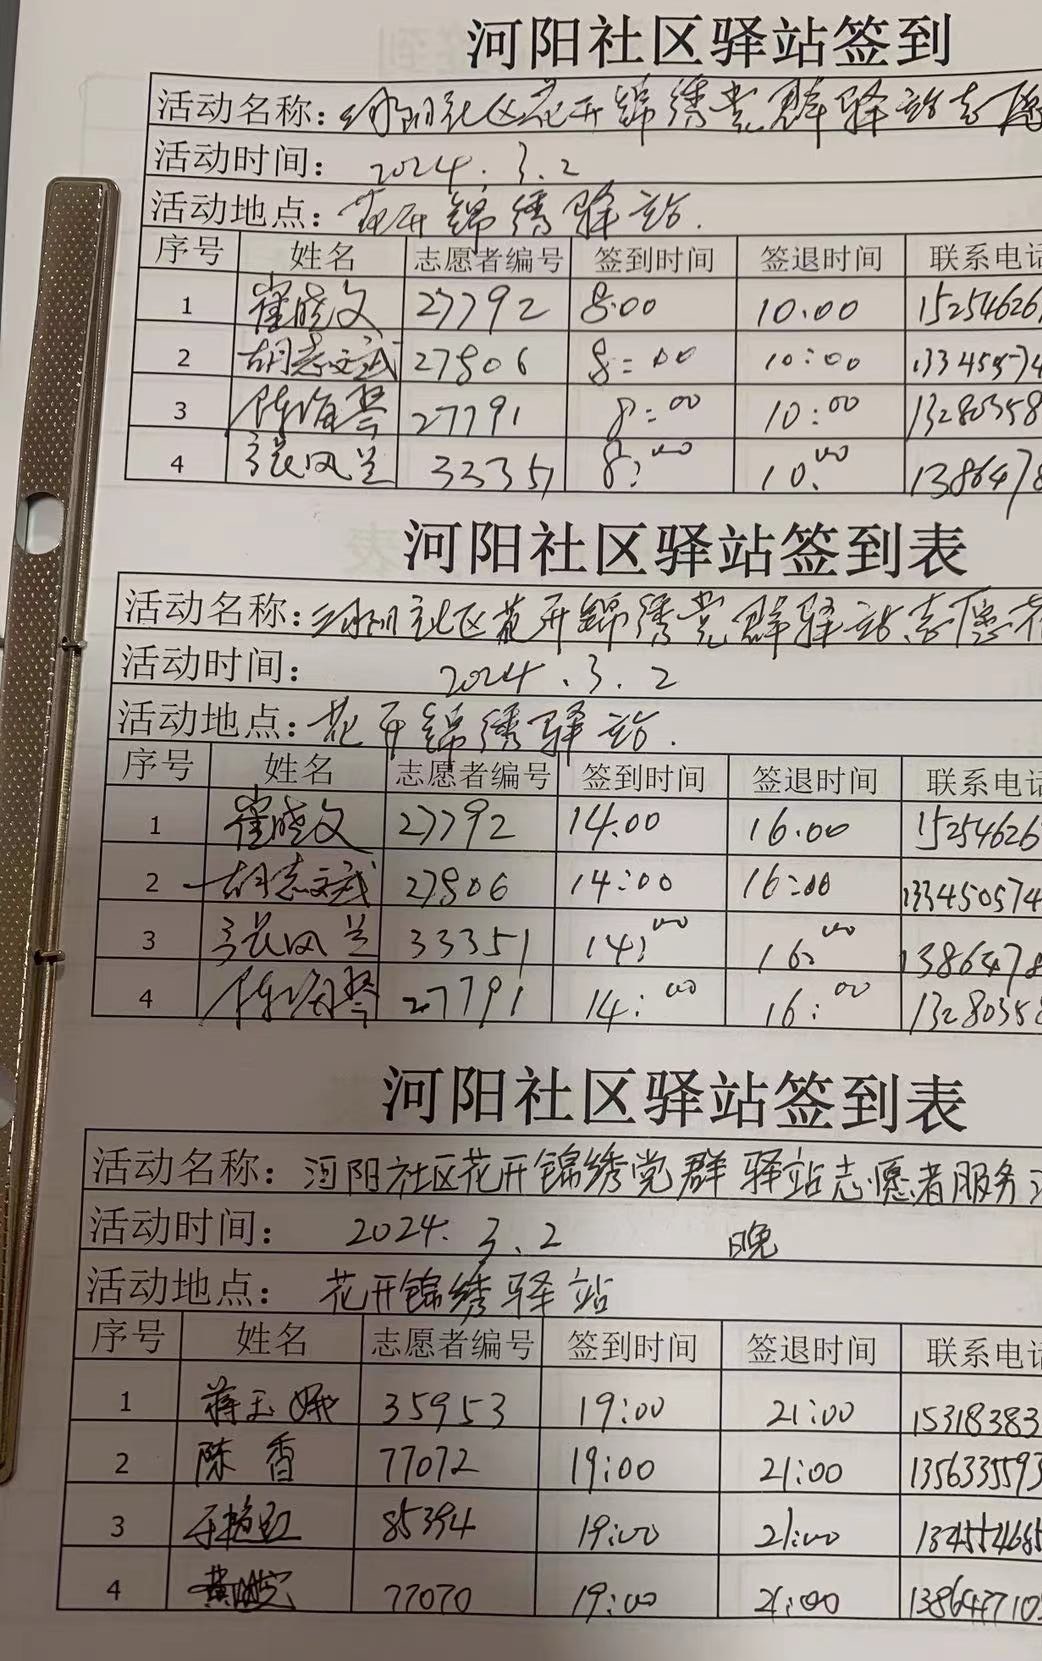 河阳社区驿站签到
活动名称：河阳社区花开锦绣党群驿站志愿
活动时间： 2024.3.2
活动地点：花开锦绣驿站.
序号 姓名 志愿者编号 签到时间 签退时间 联系电话
1 崔晓文 27792 8:00 10:00 15254626
2 胡志斌 27806 8:00 10:00 133450574
3 27791 8:00 10:00 13280358
4 张凤兰 33351 8:00 10:00 1386478
河阳社区驿站签到表
活动名称：河阳社区花开锦绣党群驿站志愿者
活动时间： 2024.3.2
活动地点：花开锦绣驿站.
序号 姓名 志愿者编号 签到时间 签退时间 联系电话
1 崔晓文 27792 14:00 16:00 15254626
2 胡志斌 27806 14:00 16:00 133450574
3 张凤兰 33351 14:00 16:00 1386478
4 27791 14:00 16:00 13280358
河阳社区驿站签到表
活动名称：河阳社区花开锦绣党群驿站志愿者服务
活动时间： 2024.3.2 晚
活动地点： 花开锦绣驿站
序号 姓名 志愿者编号 签到时间 签退时间 联系电话
1 蒋玉娥 35953 19:00 21:00 15318383
2 陈香 77072 19:00 21:00 1356335593
3 于艳红 85394 19:00 21:00
4 77070 19:00 21:00